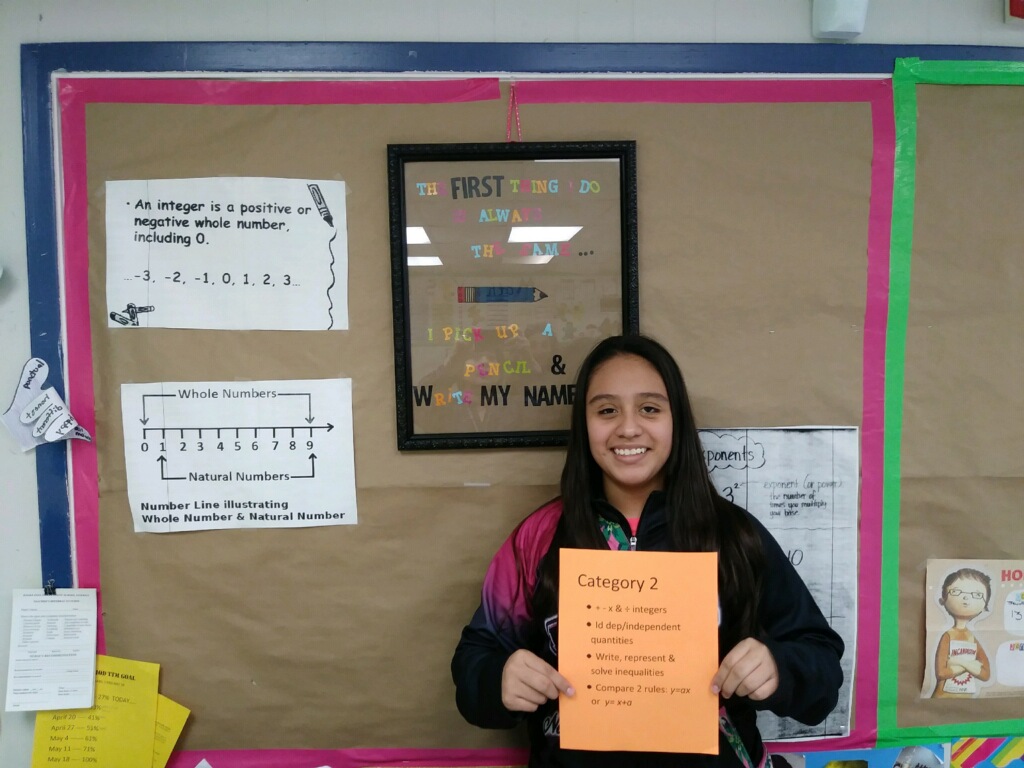 • An integer is a positive or
negative whole number,
including 0.
...-3, -2, -1, 0, 1, 2, 3...
Whole Numbers
0 1 2 3 4 5 6 7 8 9
Natural Numbers
Number Line illustrating
Whole Number & Natural Number
THE FIRST THING I DO
IS ALWAYS
THE SAME...
I PICK UP A
PENCIL &
WRITE MY NAME
ponents
3²
exponent (or power)
the number of
times you multiply
you base
Category 2
• + - x & ÷ integers
• Id dep/independent
quantities
• Write, represent &
solve inequalities
• Compare 2 rules: y=ax
or y= x+a
punctual
TTM GOAL
27% TODAY...
April 20 ---- 41%
May 4 ---- 61%
May 11 ---- 71%
May 18 ---- 100%
HO